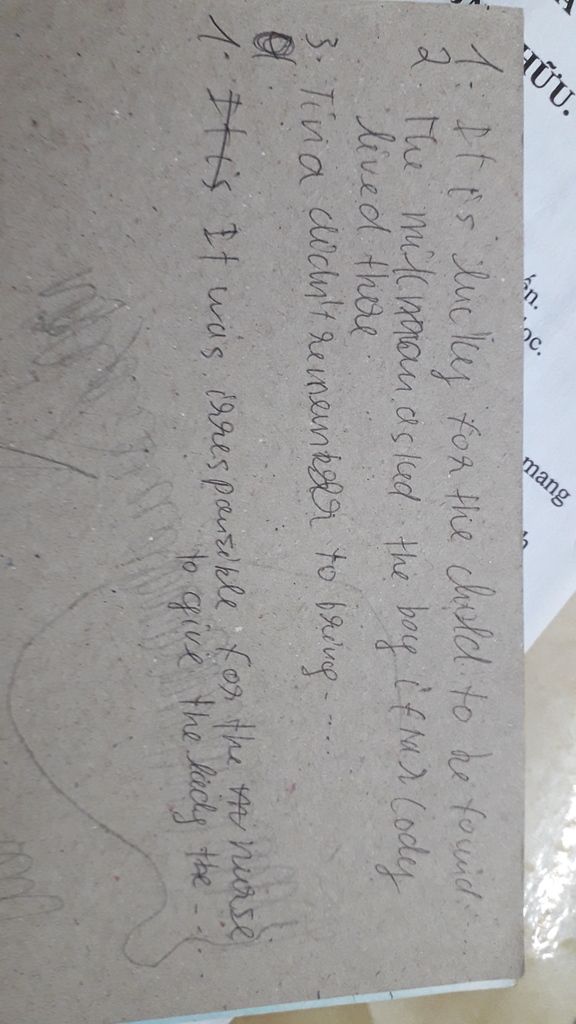 1. It is lucky for the child to be found....
2. The milkman asked the boy if Mr Cody
lived there.
3. Tina didn't remember to bring....
1. It is It was irresponsible for the nurse
to give the lady the ....
HỮU.
ọc.
mang